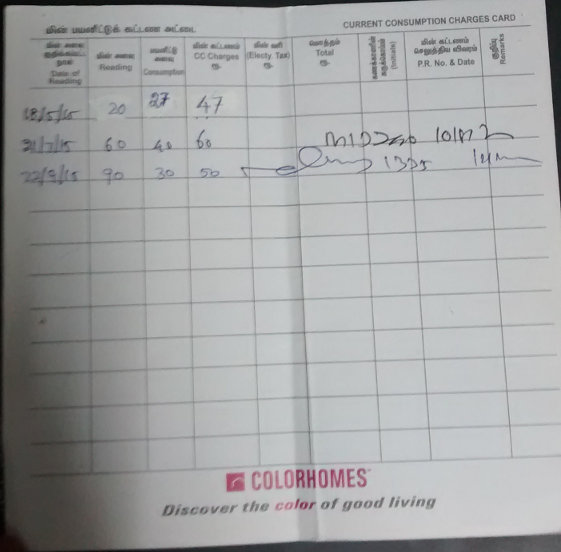 மின் பயனீட்டுக் கட்டண அட்டை CURRENT CONSUMPTION CHARGES CARD
மின் அளவு குறிக்கப்பட்ட நாள் Date of Reading
மின் அளவு Reading
பயனீட்டு அளவு Consumption
மின் கட்டணம் CC Charges ரூ.
மின் வரி (Electy. Tax) ரூ.
மொத்தம் Total ரூ.
(Initials)
மின் கட்டணம் செலுத்திய விவரம் P.R. No. & Date
குறிப்பு Remarks
18/5/15 20 27 47
31/7/15 60 40 60
22/9/15 90 30 50 1325
COLORHOMES
Discover the color of good living